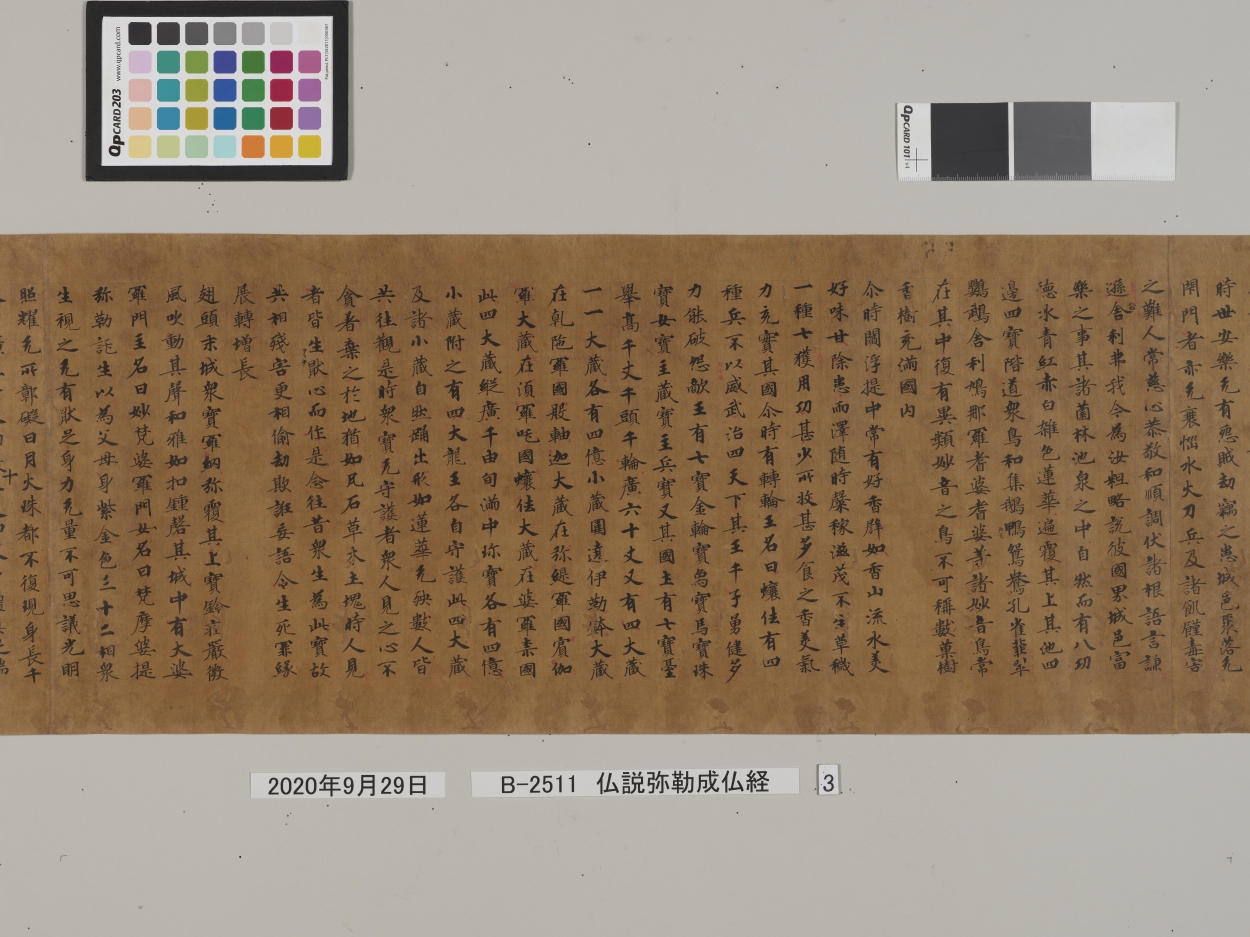 QPCARD 203
www.qpcard.com
QPCARD 101 v4
時世安樂无有惡賊劫竊之患城邑聚落无
閇門者亦无衰惱水火刀兵及諸飢饉毒害
之難人常慈心恭敬和順調伏諸根語言謙
遜舍利弗我今為汝粗略說彼國界城邑富
樂之事其諸薗林池泉之中自然而有八功
德水青紅赤白雜色蓮華遍覆其上其池四
邊四寶階道衆鳥和集鵝鴨鴛鴦孔雀翡翠
鸚鵡舍利鳩那羅耆婆耆婆等諸妙音鳥常
在其中復有異類妙音之鳥不可稱數菓樹
香樹充滿國内
尒時閻浮提中常有好香辟如香山流水美
好味甘除患雨澤随時穀稼滋茂不生草穢
一種七獲用功甚少所收甚多食之香美氣
力充實其國尒時有轉輪王名曰蠰佉有四
種兵不以威武治四天下其王千子勇健多
力能破怨敵王有七寶金輪寶象寶馬寶珠
寶女寶主藏寶主兵寶又其國土有七寶臺
舉高千丈千頭千輪廣六十丈又有四大藏
一一大藏各有四億小藏圍遶伊勒鉢大藏
在乹陁羅國般軸迦大藏在弥緹羅國賓伽
羅大藏在湏羅吒國蠰佉大藏在婆羅柰國
此四大藏縱廣千由旬滿中珎寶各有四億
小藏附之有四大龍王各自守護此四大藏
及諸小藏自然踊出形如蓮華无央數人皆
共往觀是時衆寶无守護者衆人見之心不
貪著棄之於地猶如瓦石草木土塊時人見
者皆生猒心而作是念往昔衆生為此寶故
共相殘害更相偷劫欺誑妄語令生死罪緣
展轉增長
翅頭末城衆寶羅網弥覆其上寶鈴莊嚴微
風吹動其聲和雅如扣鍾磬其城中有大婆
羅門主名曰妙梵婆羅門女名曰梵摩婆提
弥勒託生以為父母身紫金色三十二相衆
生視之无有猒之身力无量不可思議光明
照耀无所鄣礙日月火珠都不復現身長千
2020年9月29日
B-2511 仏説弥勒成仏経
3